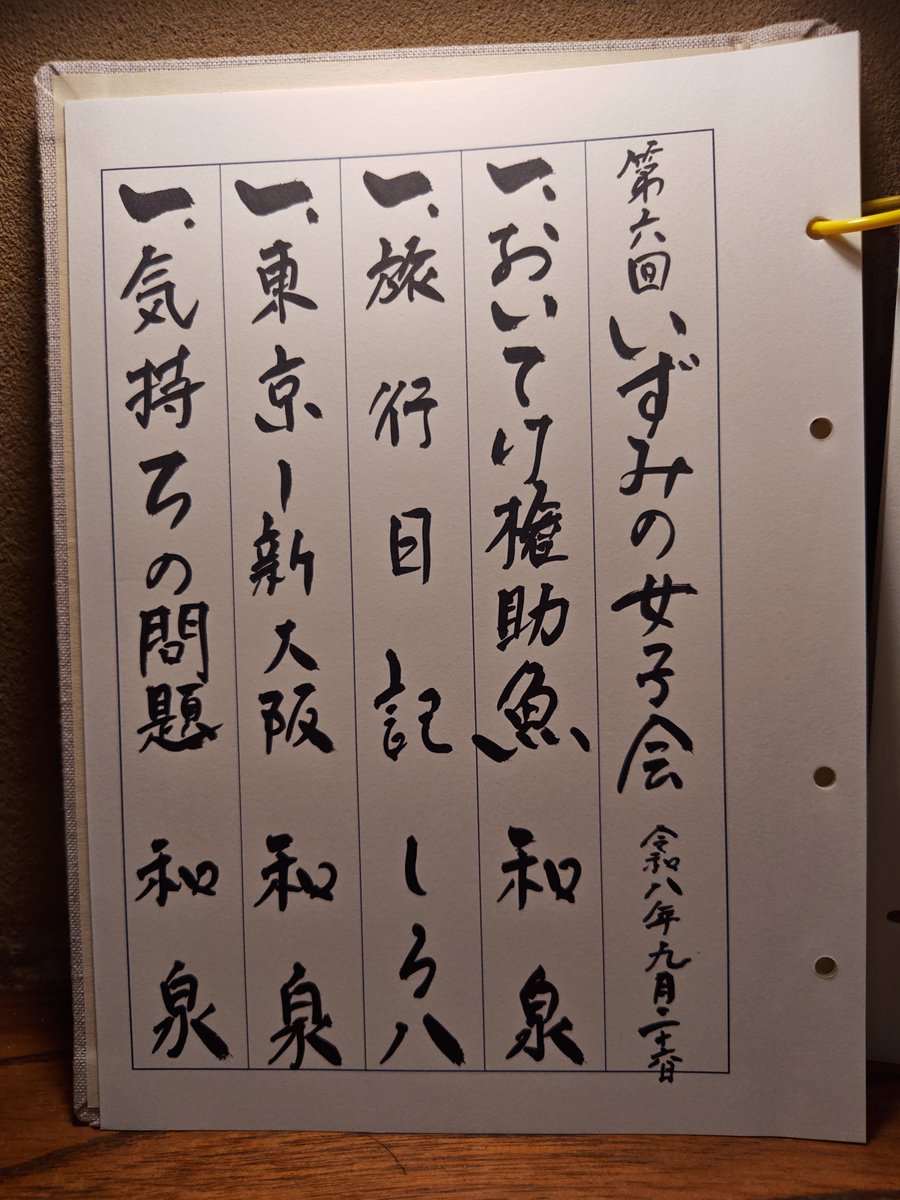 第六回 いずみの女子会 令和八年九月二十六日
一、おいてけ権助魚 和泉
一、旅行日記 しろ八
一、東京ー新大阪 和泉
一、気持ちの問題 和泉